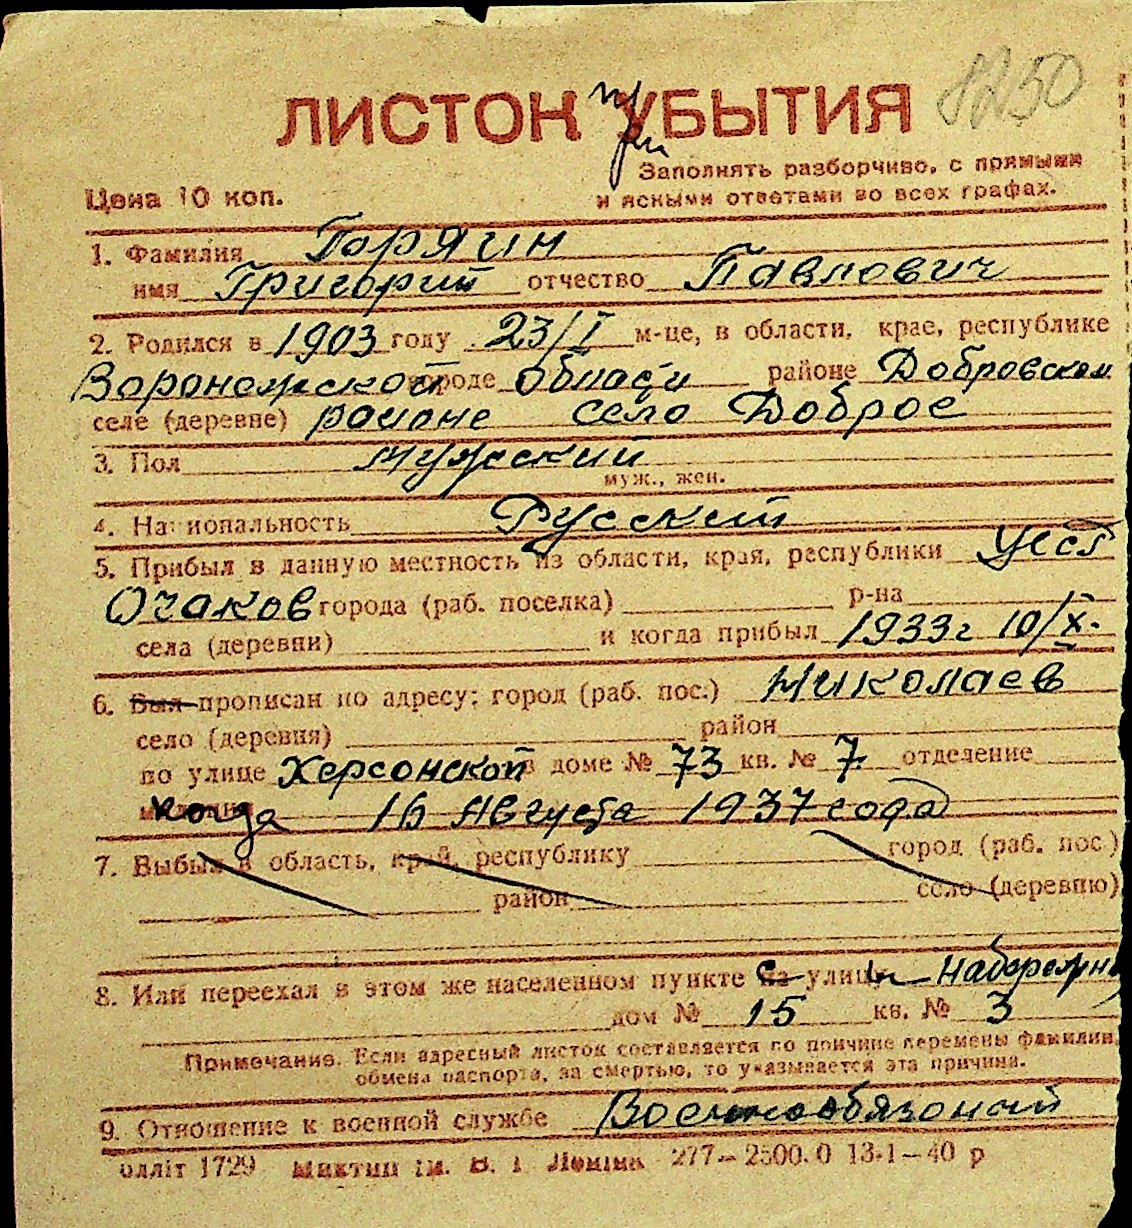 1250
ЛИСТОК при УБЫТИЯ
Заполнять разборчиво, с прямыми
и ясными ответами во всех графах.
Цена 10 коп.
1. Фамилия Горяин
имя Григорий отчество Павлович
2. Родился в 1903 году 23/I м-це, в области, крае, республике
Воронежской городе области районе Добровском
селе (деревне) районе село Доброе
3. Пол мужский
муж., жен.
4. Национальность Русский
5. Прибыл в данную местность из области, края, республики УССР
Очаков города (раб. поселка) р-на
села (деревни) и когда прибыл 1933г 10/X.
6. Был прописан по адресу: город (раб. пос.) Николаев
село (деревня) район
по улице Херсонской в доме № 73 кв. № 7 отделение
когда 16 Августа 1937 года
7. Выбыл в область, край, республику город (раб. пос.)
район село (деревню)
8. Или переехал в этом же населенном пункте с на улицы Набережн
дом № 15 кв. № 3
Примечание. Если адресный листок составляется по причине перемены фамилии,
обмена паспорта, за смертью, то указывается эта причина.
9. Отношение к военной службе Военнообязоный
олліт 1729 ім. В. І. Леніна 277—2500.0 13-1—40 р